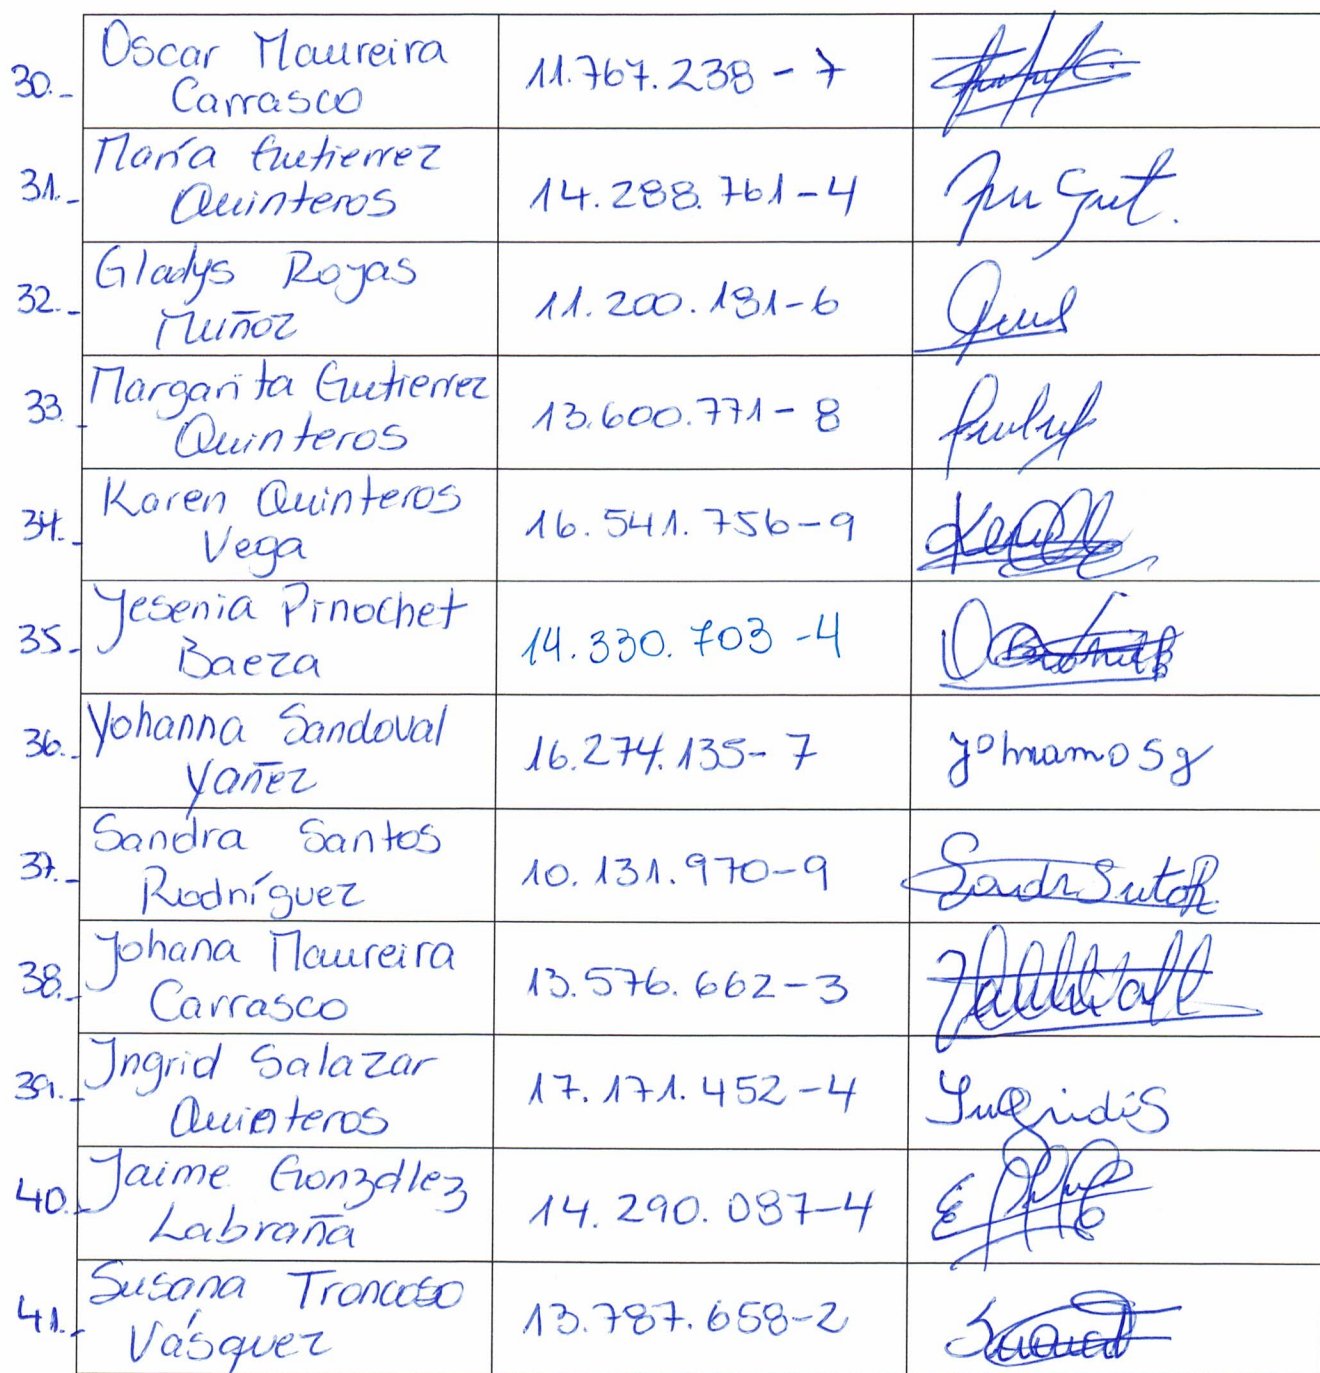 30.- Oscar Maureira Carrasco 11.767.238-7
31.- María Gutierrez Quinteros 14.288.761-4
32.- Gladys Rojas Muñoz 11.200.181-6
33.- Margarita Gutierrez Quinteros 13.600.771-8
34.- Karen Quinteros Vega 16.541.756-9
35.- Jesenia Pinochet Baeza 14.330.703-4
36.- Yohanna Sandoval Yañez 16.274.135-7
37.- Sandra Santos Rodríguez 10.131.970-9
38.- Johana Maureira Carrasco 13.576.662-3
39.- Ingrid Salazar Quinteros 17.171.452-4
40.- Jaime González Labraña 14.290.087-4
41.- Susana Troncoso Vásquez 13.787.658-2